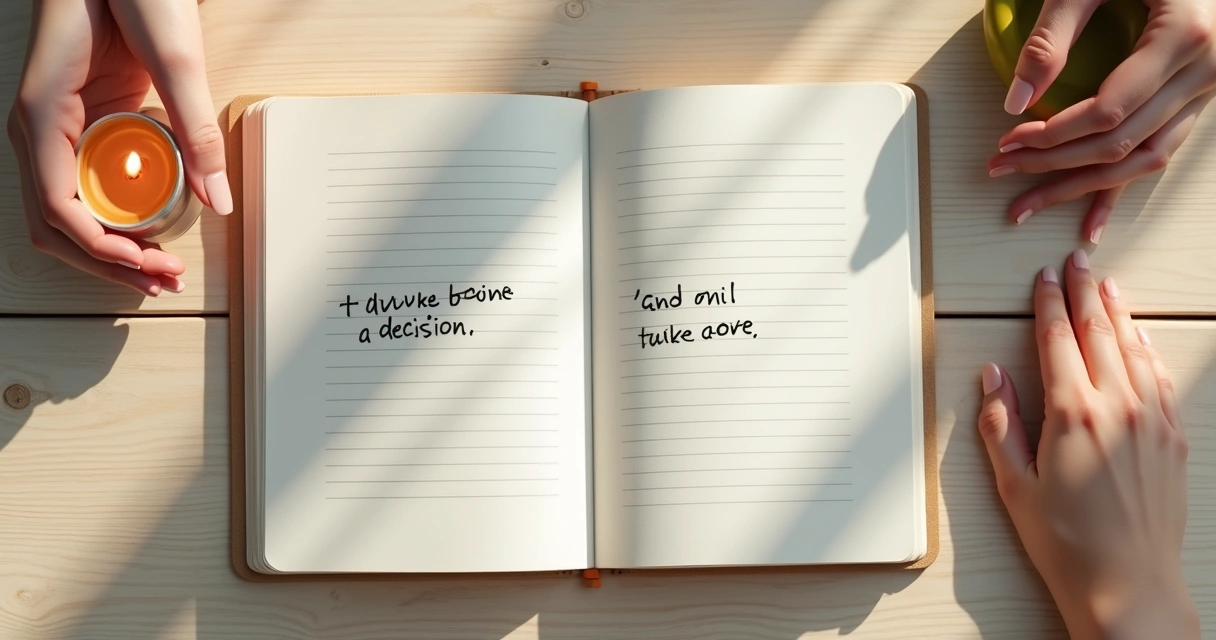 + duvuke bcoine
a decision.
'and onil
tuike aove.